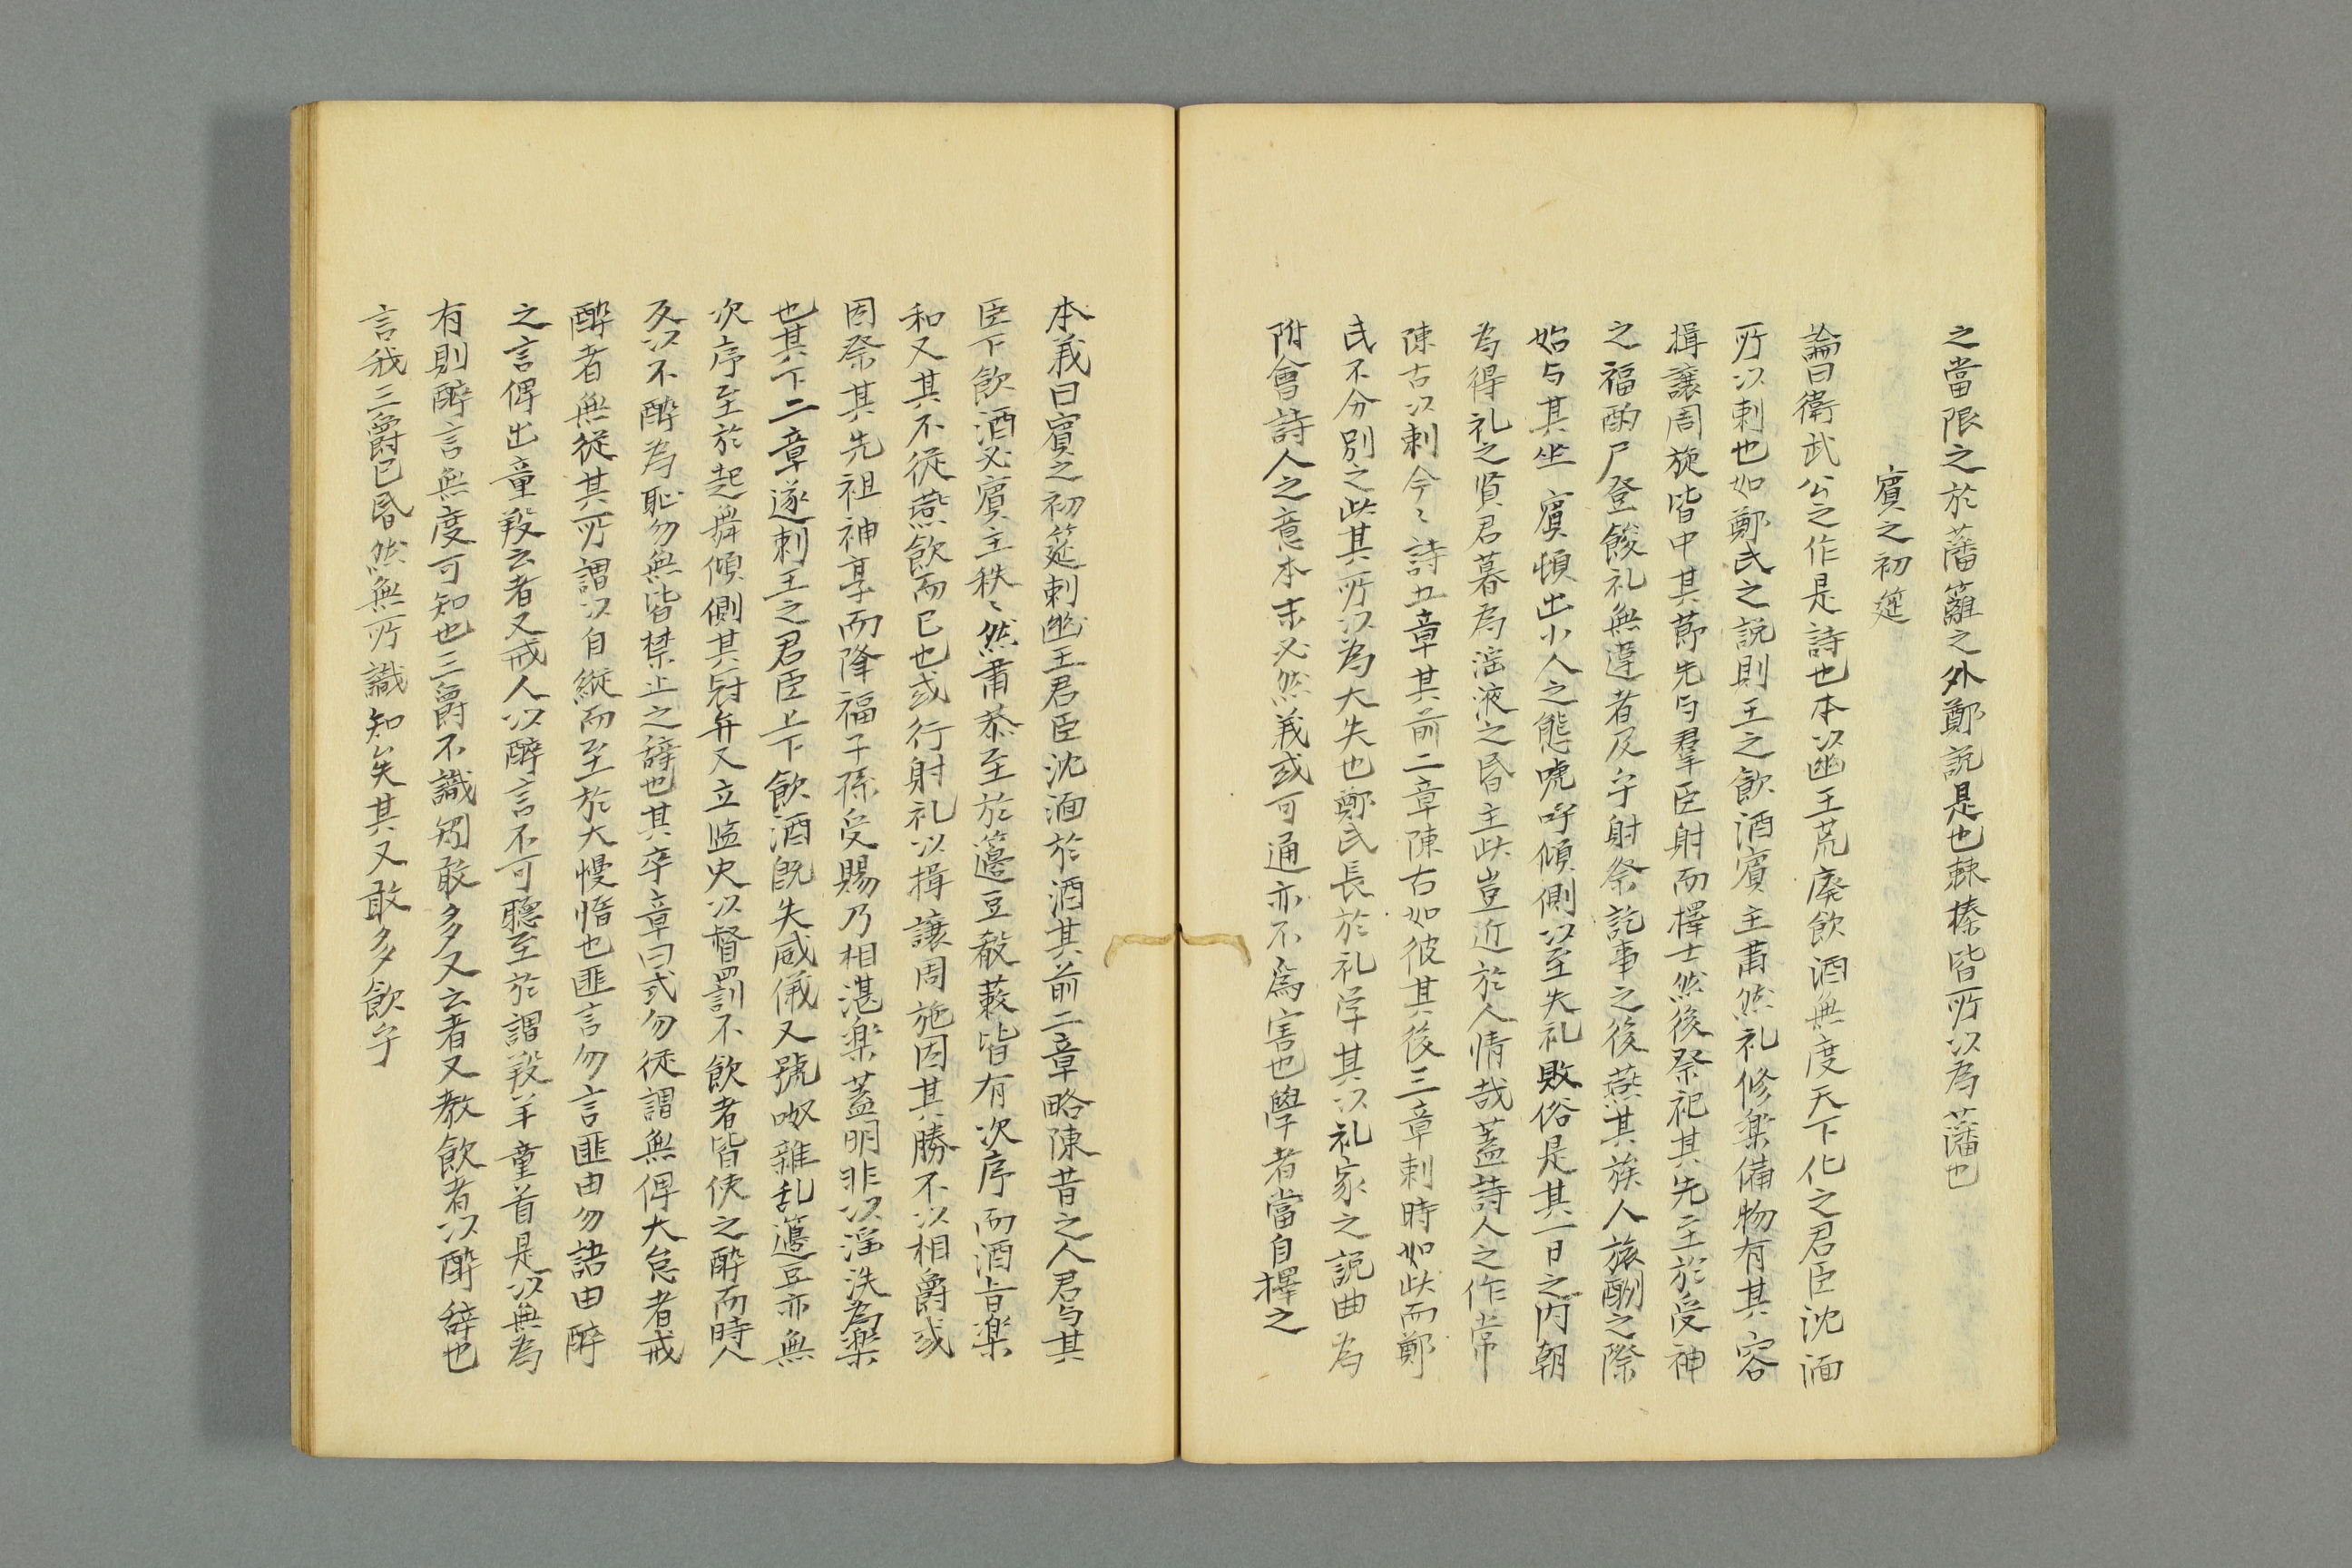 之當限之於藩籬之外鄭説是也棘榛皆所以為藩也
賓之初筵
論曰衛武公之作是詩也本以幽王荒廃飲酒無度天下化之君臣沈湎
所以刺也如鄭氏之説則王之飲酒賓主肅然礼修楽備物有其容
揖讓周旋皆中其莭先与羣臣射而擇士然後祭祀其先王於受神
之福酌尸登餕礼無違者及乎射祭訖事之後燕其族人旅酬之際
始与其坐賓頓出小人之態號呼傾側以至失礼敗俗是其一日之内朝
為得礼之賢君暮為滛液之昏主此豈近於人情哉蓋詩人之作常
陳古以刺今〻詩五章其前二章陳古如彼其後三章刺時如此而鄭
氏不分別之此其所以為大失也鄭氏長於礼学其以礼家之説曲為
附會詩人之意本未必然義或可通亦不為害也學者當自擇之
本義曰賓之初筵刺幽王君臣沈湎於酒其前二章略陳昔之人君与其
臣下飲酒必賓主秩〻然肅恭至於籩豆殽蔌皆有次序而酒旨楽
和又其不從燕飲而已也或行射礼以揖讓周施因其勝不以相爵或
因祭其先祖神享而降福子孫受賜乃相湛楽蓋明非以滛泆為楽
也其下二章遂刺王之君臣上下飲酒既失威儀又號呶雜乱籩豆亦無
次序至於起舞傾側其冠弁又立監史以督罰不飲者皆使之醉而時人
反以不醉為恥勿無皆禁止之辞也其卒章曰式勿從謂無俾大怠者戒
醉者無従其所謂以自縦而至於大慢惰也匪言勿言匪由勿語由醉
之言俾出童羖云者又戒人以醉言不可聴至於謂羖羊童首是以無為
有則醉言無度可知也三爵不識矧敢多又云者又教飲者以酔辞也
言我三爵已昏然無所識知矣其又敢多飲乎